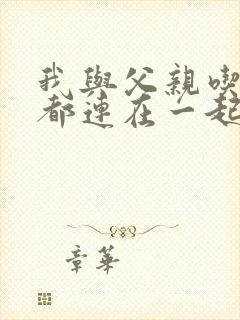 我與父親喫
都連在一起
章華